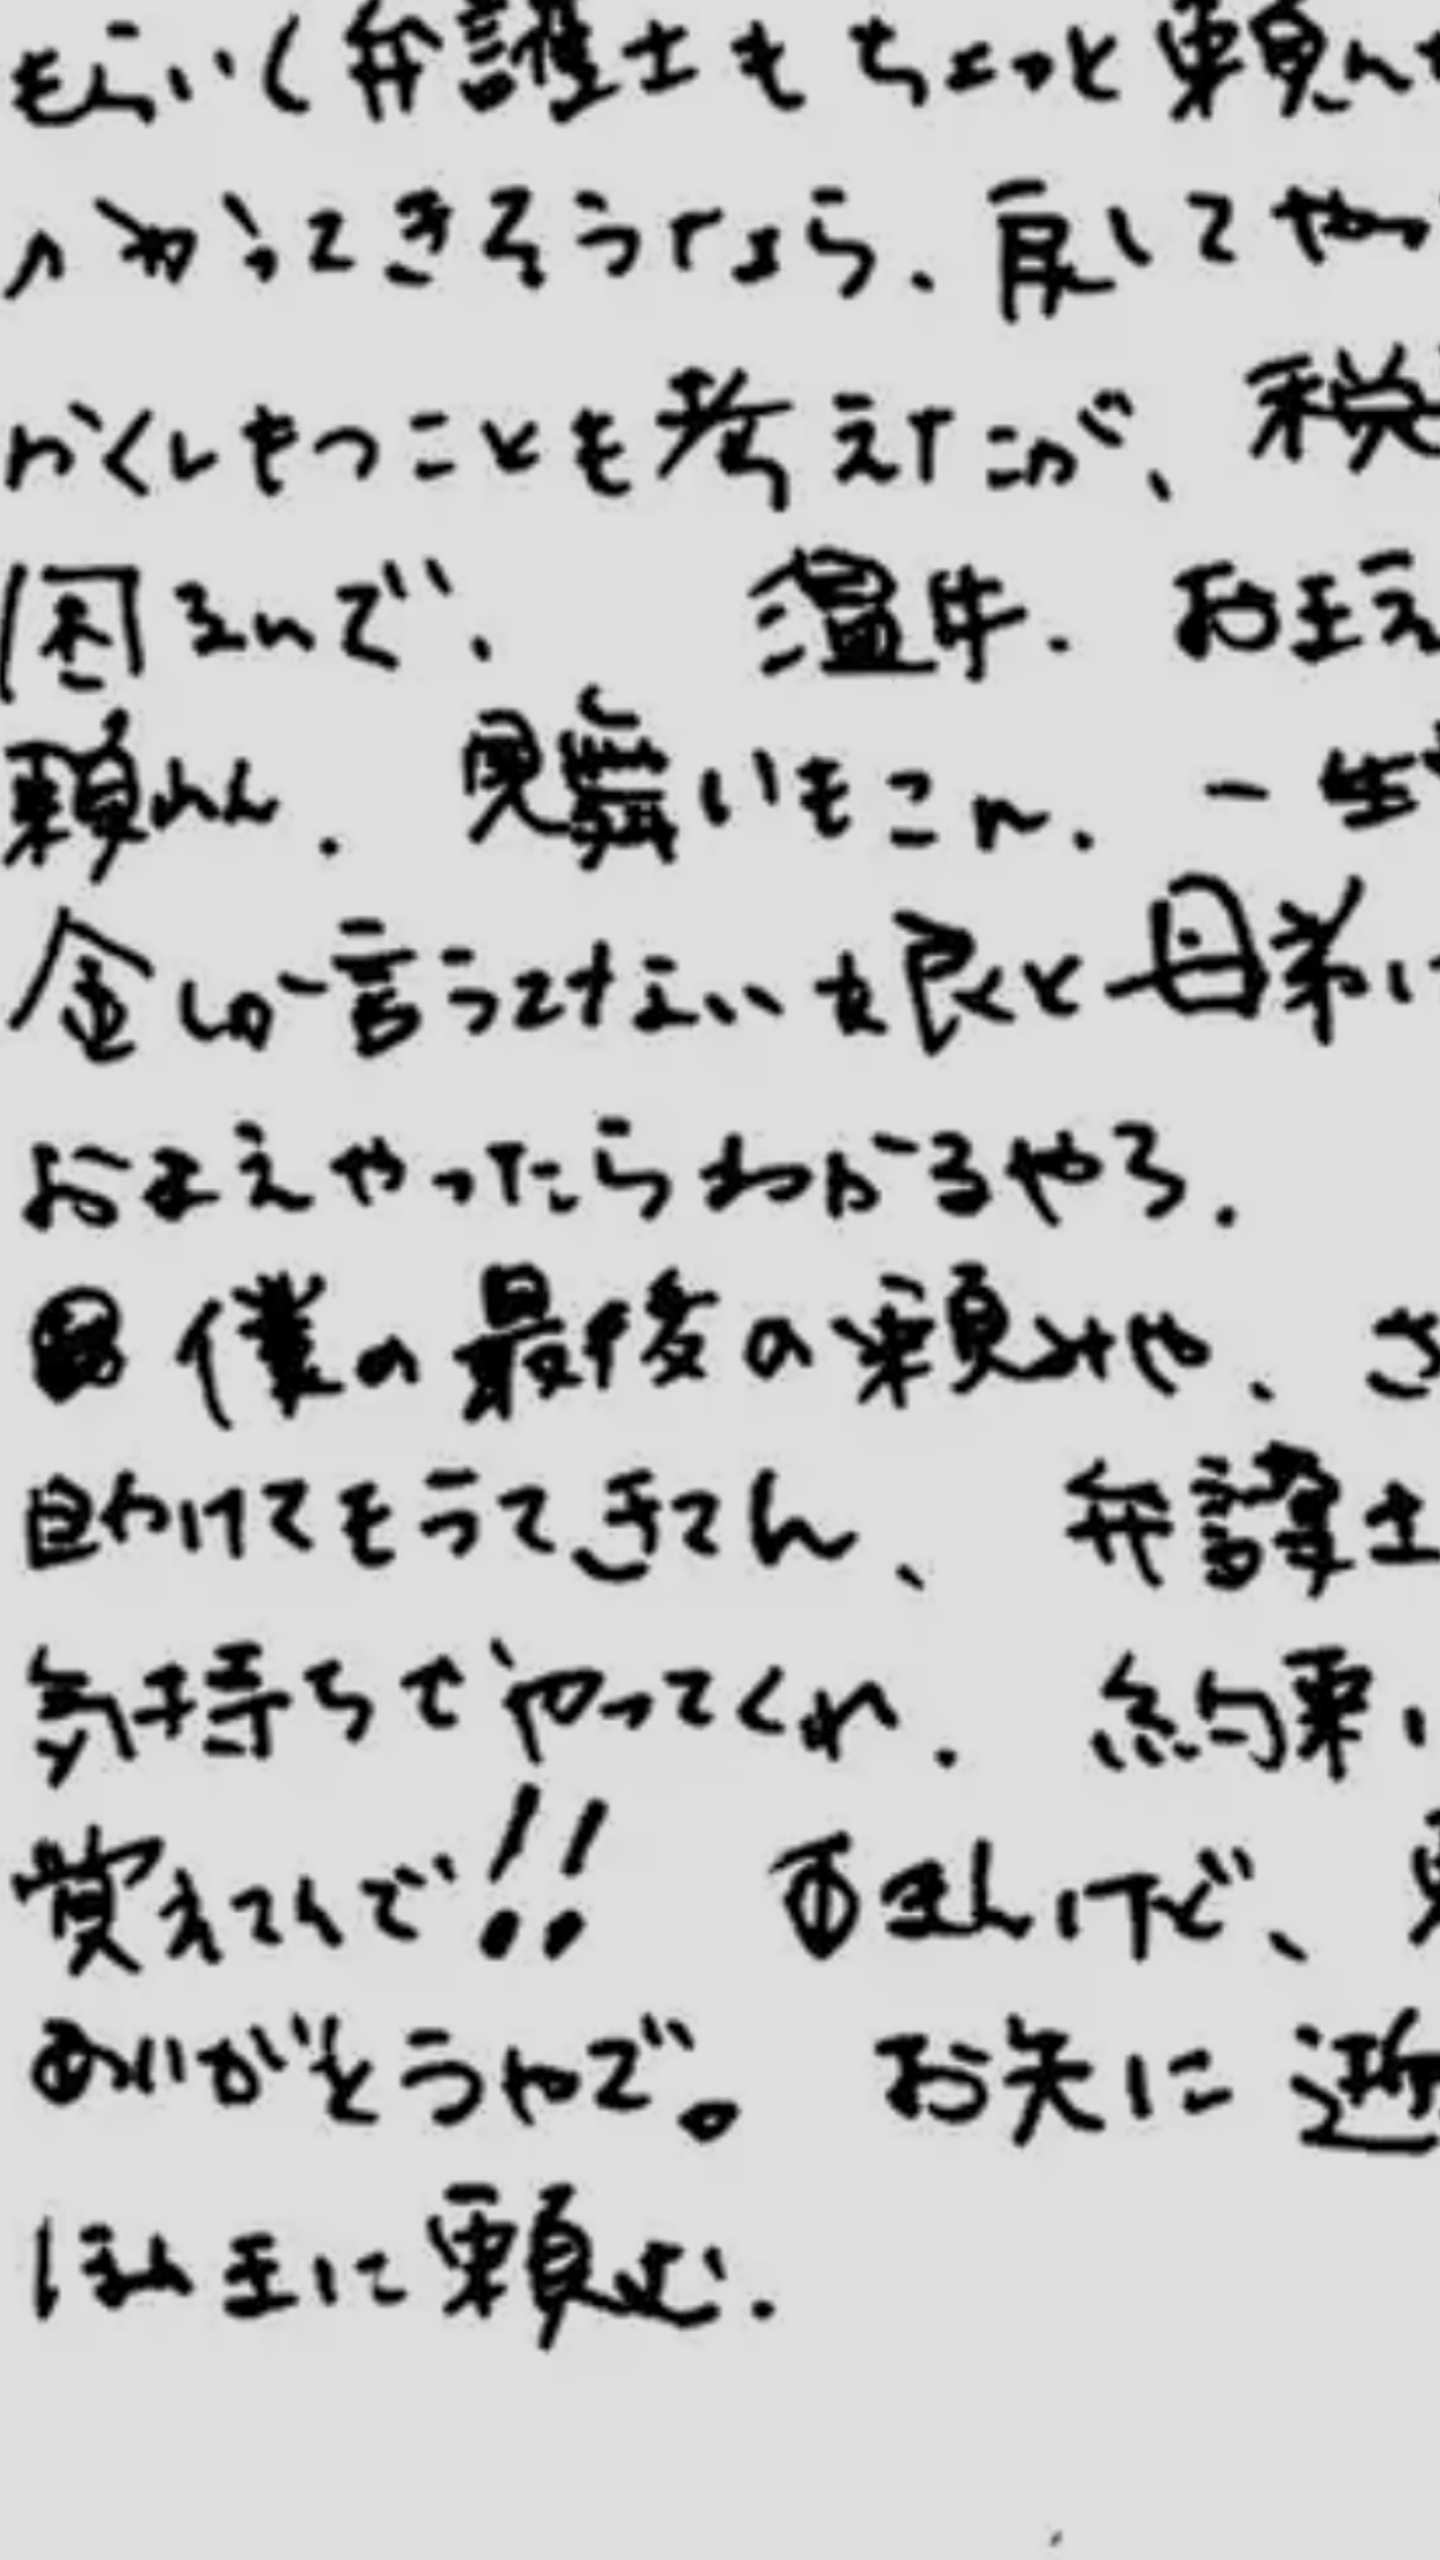 もらいく弁護士もちょっと頼ん
わってきそうなら、戻してやっ
かくしもつことも考えたが、税
困るんで、 温牛. お玉え
頼れん. 見舞いもこん. 一生
金しか言うてない娘と母弟に
おまえやったらわかるやろ.
僕の最後の頼みや、さ
助けてもうてきてん、 弁護士
気持ちでやってくれ. 約束い
覚えてんで!! 百まんけど、
ありがとうやで。 お先に逝
ほんまに頼む.